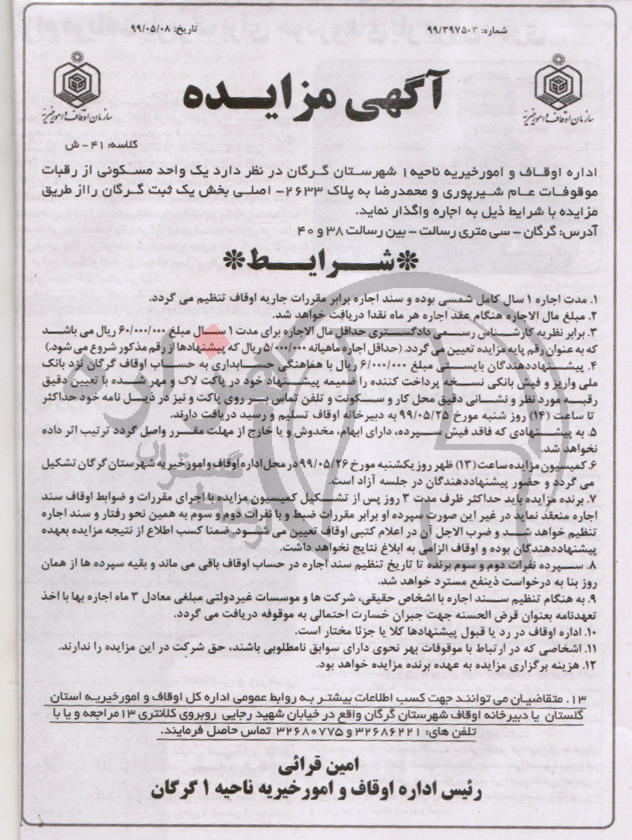 شماره: 99/397503
تاریخ: 99/05/08
سازمان اوقاف و امور خیریه
سازمان اوقاف و امور خیریه
آگهی مزایده
کلاسه: 41- ش
اداره اوقاف و امورخیریه ناحیه1 شهرستان گرگان در نظر دارد یک واحد مسکونی از رقبات
موقوفات عام شیرپوری و محمدرضا به پلاک 2633- اصلی بخش یک ثبت گرگان رااز طریق
مزایده با شرایط ذیل به اجاره واگذار نماید.
آدرس: گرگان - سی متری رسالت - بین رسالت 38 و 40
*شرایط*
1. مدت اجاره 1 سال کامل شمسی بوده و سند اجاره برابر مقررات جاریه اوقاف تنظیم می گردد.
2. مبلغ مال الاجاره هنگام عقد اجاره هر ماه نقدا دریافت خواهد شد.
3. برابر نظریه کارشناس رسمی دادگستری حداقل مال الاجاره برای مدت 1 سال مبلغ 60/000/000 ریال می باشد
که به عنوان رقم پایه مزایده تعیین می گردد. (حداقل اجاره ماهیانه 5/000/000 ریال که پیشنهادها از رقم مذکور شروع می شود.)
4. پیشنهاددهندگان بایستی مبلغ 6/000/000 ریال با هماهنگی حسابداری به حساب اوقاف گرگان نزد بانک
ملی واریز و فیش بانکی نسخه پرداخت کننده را ضمیمه پیشنهاد خود در پاکت لاک و مهر شده با تعیین دقیق
رقبه مورد نظر و نشانی دقیق محل کار و سکونت و تلفن تماس بر روی پاکت و نیز در ذیل نامه خود حداکثر
تا ساعت (14) روز شنبه مورخ 99/05/25 به دبیرخانه اوقاف تسلیم و رسید دریافت دارند.
5. به پیشنهادی که فاقد فیش سپرده، دارای ابهام، مخدوش و یا خارج از مهلت مقرر واصل گردد ترتیب اثر داده
نخواهد شد.
6. کمیسیون مزایده ساعت (13) ظهر روز یکشنبه مورخ 99/05/26 در محل اداره اوقاف و امورخیریه شهرستان گرگان تشکیل
می گردد و حضور پیشنهاددهندگان در جلسه آزاد است.
7. برنده مزایده باید حداکثر ظرف مدت 3 روز پس از تشکیل کمیسیون مزایده با اجرای مقررات و ضوابط اوقاف سند
اجاره منعقد نماید در غیر این صورت سپرده او برابر مقررات ضبط و با نفرات دوم و سوم به همین نحو رفتار و سند اجاره
تنظیم خواهد شد و ضرب الاجل آن در اعلام کتبی اوقاف تعیین می شود. ضمنا کسب اطلاع از نتیجه مزایده بعهده
پیشنهاددهندگان بوده و اوقاف الزامی به ابلاغ نتایج نخواهد داشت.
8. سپرده نفرات دوم و سوم برنده تا تاریخ تنظیم سند اجاره در حساب اوقاف باقی می ماند و بقیه سپرده ها از همان
روز بنا به درخواست ذینفع مسترد خواهد شد.
9. به هنگام تنظیم سند اجاره با اشخاص حقیقی، شرکت ها و موسسات غیردولتی مبلغی معادل 3 ماه اجاره بها با اخذ
تعهدنامه بعنوان قرض الحسنه جهت جبران خسارت احتمالی به موقوفه دریافت می گردد.
10. اداره اوقاف در رد یا قبول پیشنهادها کلا یا جزئا مختار است.
11. اشخاصی که در ارتباط با موقوفات بهر نحوی دارای سوابق نامطلوبی باشند، حق شرکت در این مزایده را ندارند.
12. هزینه برگزاری مزایده به عهده برنده مزایده خواهد بود.
13. متقاضیان می توانند جهت کسب اطلاعات بیشتر به روابط عمومی اداره کل اوقاف و امورخیریه استان
گلستان یا دبیرخانه اوقاف شهرستان گرگان واقع در خیابان شهید رجایی روبروی کلانتری 13 مراجعه و یا با
تلفن های: 32686221 و 32680775 تماس حاصل فرمایند.
امین قرائی
رئیس اداره اوقاف و امورخیریه ناحیه 1 گرگان